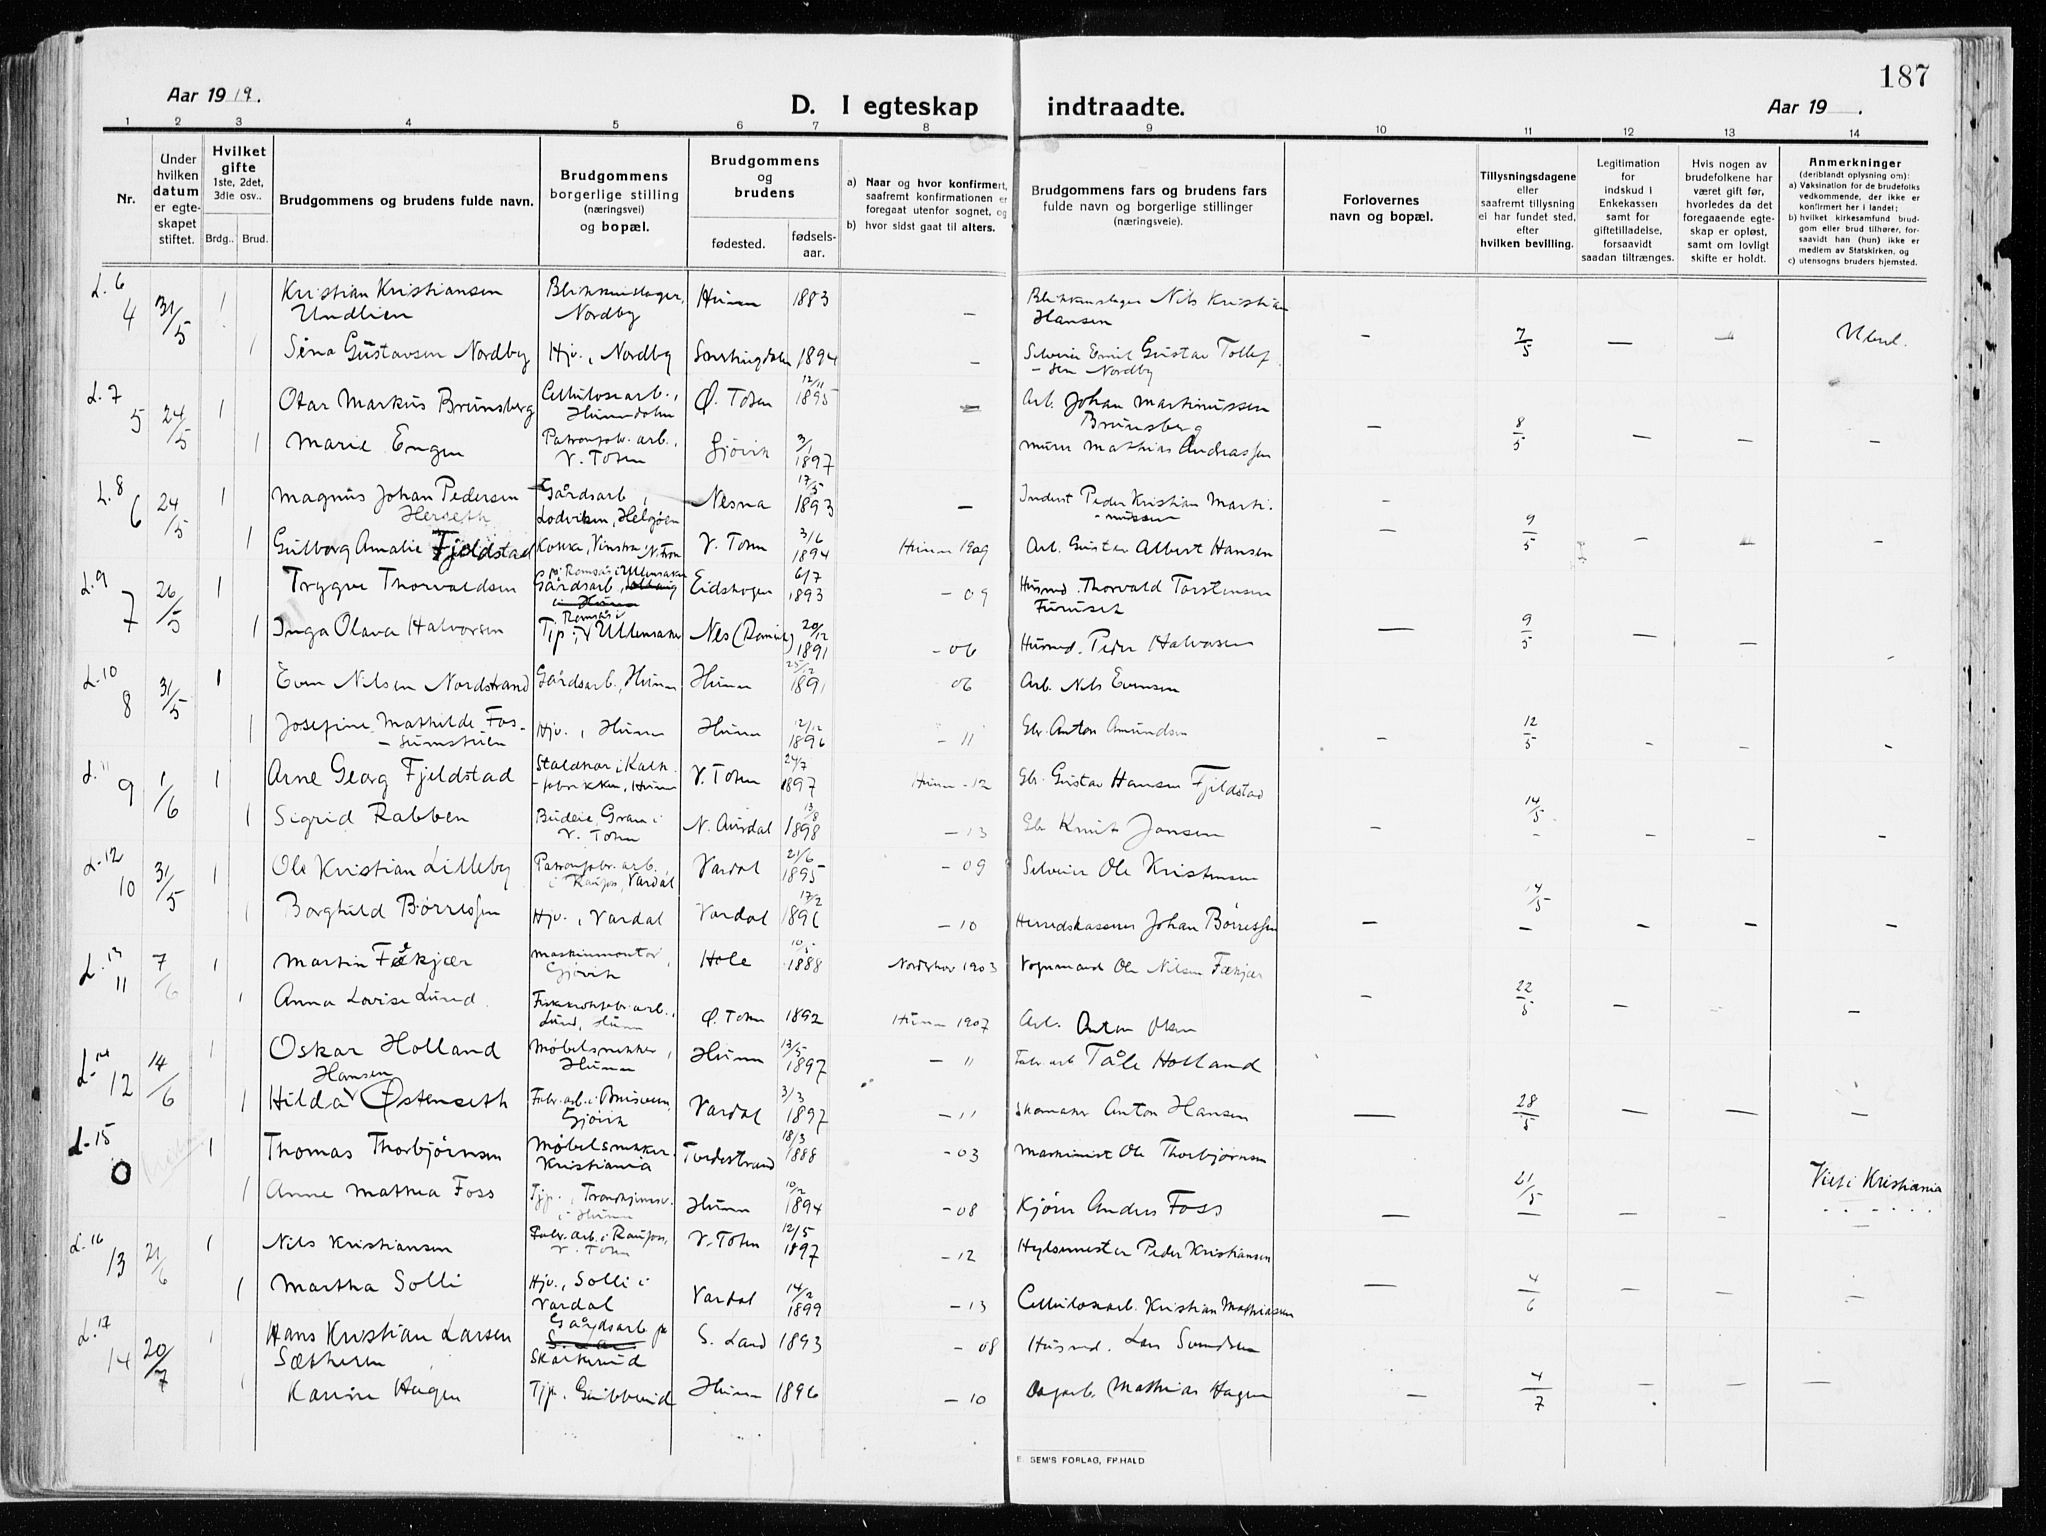 187
Aar 1919.
D. I egteskap indtraadte.
Aar 19 .
1 2 3 4 5 6 7 8 9 10 11 12 13 14
Nr.
Under hvilken datum er egteskapet stiftet.
Hvilket gifte 1ste, 2det, 3die osv..
Brdg.. Brud.
Brudgommens og brudens fulde navn.
Brudgommens borgerlige stilling (næringsvei) og bopæl.
Brudgommens og brudens
fødested. fødsels-aar.
a) Naar og hvor konfirmert, saafremt konfirmationen er foregaat utenfor sognet, og
b) hvor sidst gaat til alters.
Brudgommens fars og brudens fars fulde navn og borgerlige stillinger (næringsveie).
Forlovernes navn og bopæl.
Tillysningsdagene eller saafremt tillysning ei har fundet sted, efter hvilken bevilling.
Legitimation for indskud i Enkekassen samt for giftetilladelse, forsaavidt saadan tiltrænges.
Hvis nogen av brudefolkene har været gift før, hvorledes da det foregaaende egteskap er opløst, samt om lovligt skifte er holdt.
Anmerkninger (deriblandt oplysning om): a) Vaksination for de brudefolks vedkommende, der ikke er konfirmert her i landet; b) hvilket kirkesamfund brudgom eller brud tilhører, forsaavidt han (hun) ikke er medlem av Statskirken, og c) utensogns bruders hjemsted.
L. 6 4 31/5 1 Kristian Kristiansen Undlien Blikkenslager, Nordby Hunn 1883 – Blikkenslager Nils Kristian Hansen
1 Sina Gustavsen Nordby Hjv., Nordby 1894 – Selveier Emil Gustav Tollefsen Nordby – 7/5 – –
L. 7 5 24/5 1 Otar Markus Brunsberg Cellulosearb., Hunndalen Ø. Toten 12/11 1895 – Arb. Johan Martinussen Brunsberg
1 Marie Engen Patronfabr. arb., V. Toten Gjøvik 3/1 1897 Murer Mathias Andreassen – 8/5 – – –
L. 8 6 24/5 1 Magnus Johan Pedersen Herseth Gårdsarb., Lodviken, Helgøen Nesna 17/5 1893 – Inderst Peder Kristian Martinussen –
1 Gulborg Amalie Fjeldstad Kokke, Vinstra N. Fron V. Toten 3/6 1894 Hunn 1909 Arb. Gustav Albert Hansen – 9/5 – – –
L. 9 7 26/5 1 Trygve Thorvaldsen på Romsås i Ullensaker Gårdsarb., i Hunn Eidskogen 6/7 1893 – 09 Husmd. Thorvald Torstensen Furuset
1 Inga Olava Halvorsen Tjp., Romsås i Ullensaker Nes (Romerik) 20/12 1891 – 06 Husmd. Peder Halvorsen – 9/5 – – –
L. 10 8 31/5 1 Even Nilsen Nordstrand Gårdsarb., Hunn Hunn 25/12 1891 06 Arb. Nils Evensen
1 Josefine Mathilde Fossumstuen Hjv., Hunn Hunn 12/12 1896 – 11 Gbr. Anton Amundsen – 12/5 – – –
L. 11 9 1/6 1 Arne Georg Fjeldstad Staldkar i Kalkfabrikken, Hunn V. Toten 24/7 1897 Hunn – 12 Gbr. Gustav Hansen Fjeldstad
1 Sigrid Rabben Budeie, Gran i V. Toten N. Aurdal 13/8 1898 – 13 Gbr. Knut Jonsen – 14/5 – – –
L. 12 10 31/5 1 Ole Kristian Lilleby Patronfabr. arb. i Raufos, Vardal Vardal 21/6 1895 – 09 Selveier Ole Kristensen
1 Borghild Børressen Hjv., Vardal Vardal 17/2 1896 – 10 Herredskasserer Johan Børressen – 14/5 – – –
L. 13 11 7/6 1 Martin Fåkjær Maskinmontør, Gjøvik Hole 10/5 1888 Norderhov 1903 Vognmand Ole Nilsen Fækjær
1 Anna Lovise Lund Fiskekrokfabr. arb., Lund, Hunn Ø. Toten 1892 Hunn 1907 Arb. Anton Olsen – 22/5 – –
L. 14 12 14/6 1 Oskar Holland Møbelsnekker, Hunn Hunn 13/5 1897 – 11 Fabr. arb. Tåle Holland
1 Hilda Hansen Østenseth Fabr. arb. i Brusveen, Gjøvik Vardal 3/3 1897 – 11 Skomaker Anton Hansen – 28/5 – – –
L. 15 0 1 Thomas Thorbjørnsen Møbelsnekker Kristiania Tvedestrand 18/3 1888 – 03 Maskinist Ole Thorbjørnsen
1 Anne Mathea Foss Tjp., i Hunn Hunn 10/2 1894 – 08 Kjører Anders Foss – 21/5 – – Viet i Kristiania
L. 16 13 21/6 1 Nils Kristiansen Fabr. arb. i Raufos, V. Toten V. Toten 12/5 1897 – 12 Hylsemester Peder Kristiansen
1 Martha Solli Hjv., Solli i Vardal Vardal 14/2 1899 – 13 Cellulosearb. Kristian Mathiassen – 4/6 – – –
L. 17 14 20/7 1 Hans Kristian Larsen Sætheren Gårdsarb på Skarterud S. Land 1893 – 08 Husmd. Lars Svendsen
1 Karine Hagen Tjp. Gribberud Hunn 1896 – 10 Dagarb. Mathias Hagen – 4/7 – – –
E. SEM'S FORLAG, FR.HALD